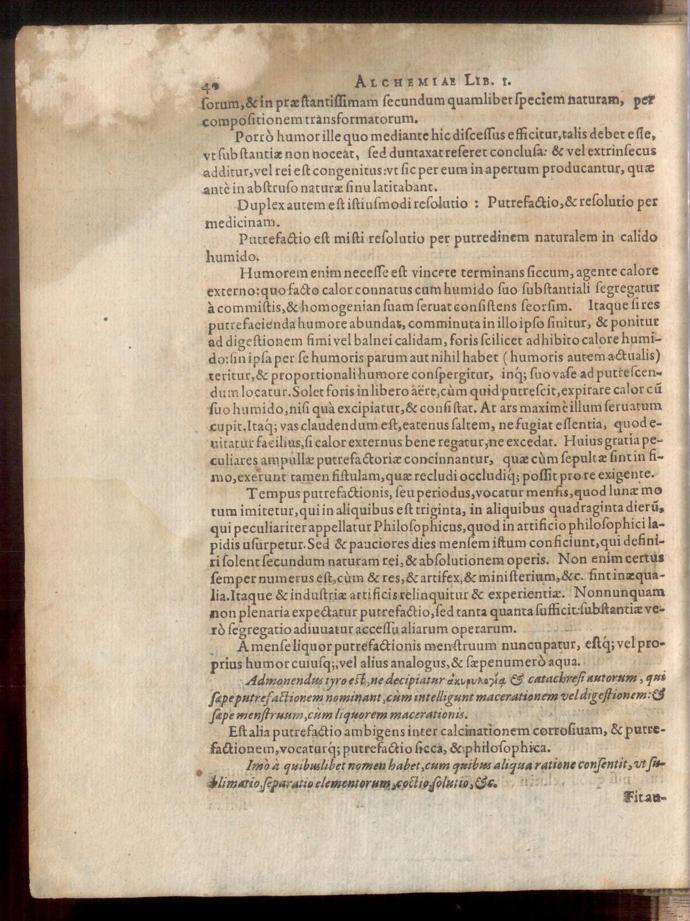 40 ALCHEMIAE LIB. I.
sorum, & in præstantissimam secundum quamlibet speciem naturam, per
compositionem transformatorum.
Porrò humor ille quo mediante hic discessus efficitur, talis debet esse,
vt substantiæ non noceat, sed duntaxat reseret conclusa: & vel extrinsecus
additur, vel rei est congenitus: vt sic per eum in apertum producantur, quæ
antè in abstruso naturæ sinu latitabant.
Duplex autem est istiusmodi resolutio : Putrefactio, & resolutio per
medicinam.
Putrefactio est misti resolutio per putredinem naturalem in calido
humido.
Humorem enim necesse est vincere terminans siccum, agente calore
externo: quo facto calor connatus cum humido suo substantiali segregatur
à commistis, & homogenian suam seruat consistens seorsim. Itaque si res
putrefacienda humore abundas, comminuta in illo ipso sinitur, & ponitur
ad digestionem fimi vel balnei calidam, foris scilicet adhibito calore humi-
do: sin ipsa per se humoris parum aut nihil habet (humoris autem actualis)
teritur, & proportionali humore conspergitur, inq; suo vase ad putrescen-
dum locatur. Solet foris in libero aëre, cùm quid putrescit, expirare calor cū
suo humido, nisi quà excipiatur, & consistat. At ars maximè illum seruatum
cupit. Itaq; vas claudendum est, eatenus saltem, ne fugiat essentia, quod e-
uitatur facilius, si calor externus bene regatur, ne excedat. Huius gratia pe-
culiares ampullæ putrefactoriæ concinnantur, quæ cùm sepultæ sint in fi-
mo, exerunt tamen fistulam, quæ recludi occludiq; possit pro re exigente.
Tempus putrefactionis, seu periodus, vocatur mensis, quod lunæ mo
tum imitetur, qui in aliquibus est triginta, in aliquibus quadraginta dierū,
qui peculiariter appellatur Philosophicus, quod in artificio philosophici la-
pidis usurpetur. Sed & pauciores dies mensem istum conficiunt, qui defini-
ri solent secundum naturam rei, & absolutionem operis. Non enim certus
semper numerus est, cùm & res, & artifex, & ministerium, &c. sint inæqua-
lia. Itaque & industriæ artificis relinquitur & experientiæ. Nonnunquam
non plenaria expectatur putrefactio, sed tanta quanta sufficit: substantiæ ve-
rò segregatio adiuuatur accessu aliarum operarum.
A mense liquor putrefactionis menstruum nuncupatur, estq; vel pro-
prius humor cuiusq;, vel alius analogus, & sæpenumerò aqua.
Admonendus tyro est, ne decipiatur & catachresi autorum, qui
sæpe putrefactionem nominant, cùm intelligunt macerationem vel digestionem: &
sæpe menstruum, cùm liquorem macerationis.
Est alia putrefactio ambigens inter calcinationem corrosiuam, & putre-
factionem, vocaturq; putrefactio sicca, & philosophica.
Imò à quibuslibet nomen habet, cum quibus aliqua ratione consentit, vt su-
blimatio, separatio elementorum, coctio, solutio, &c.
Fit au-